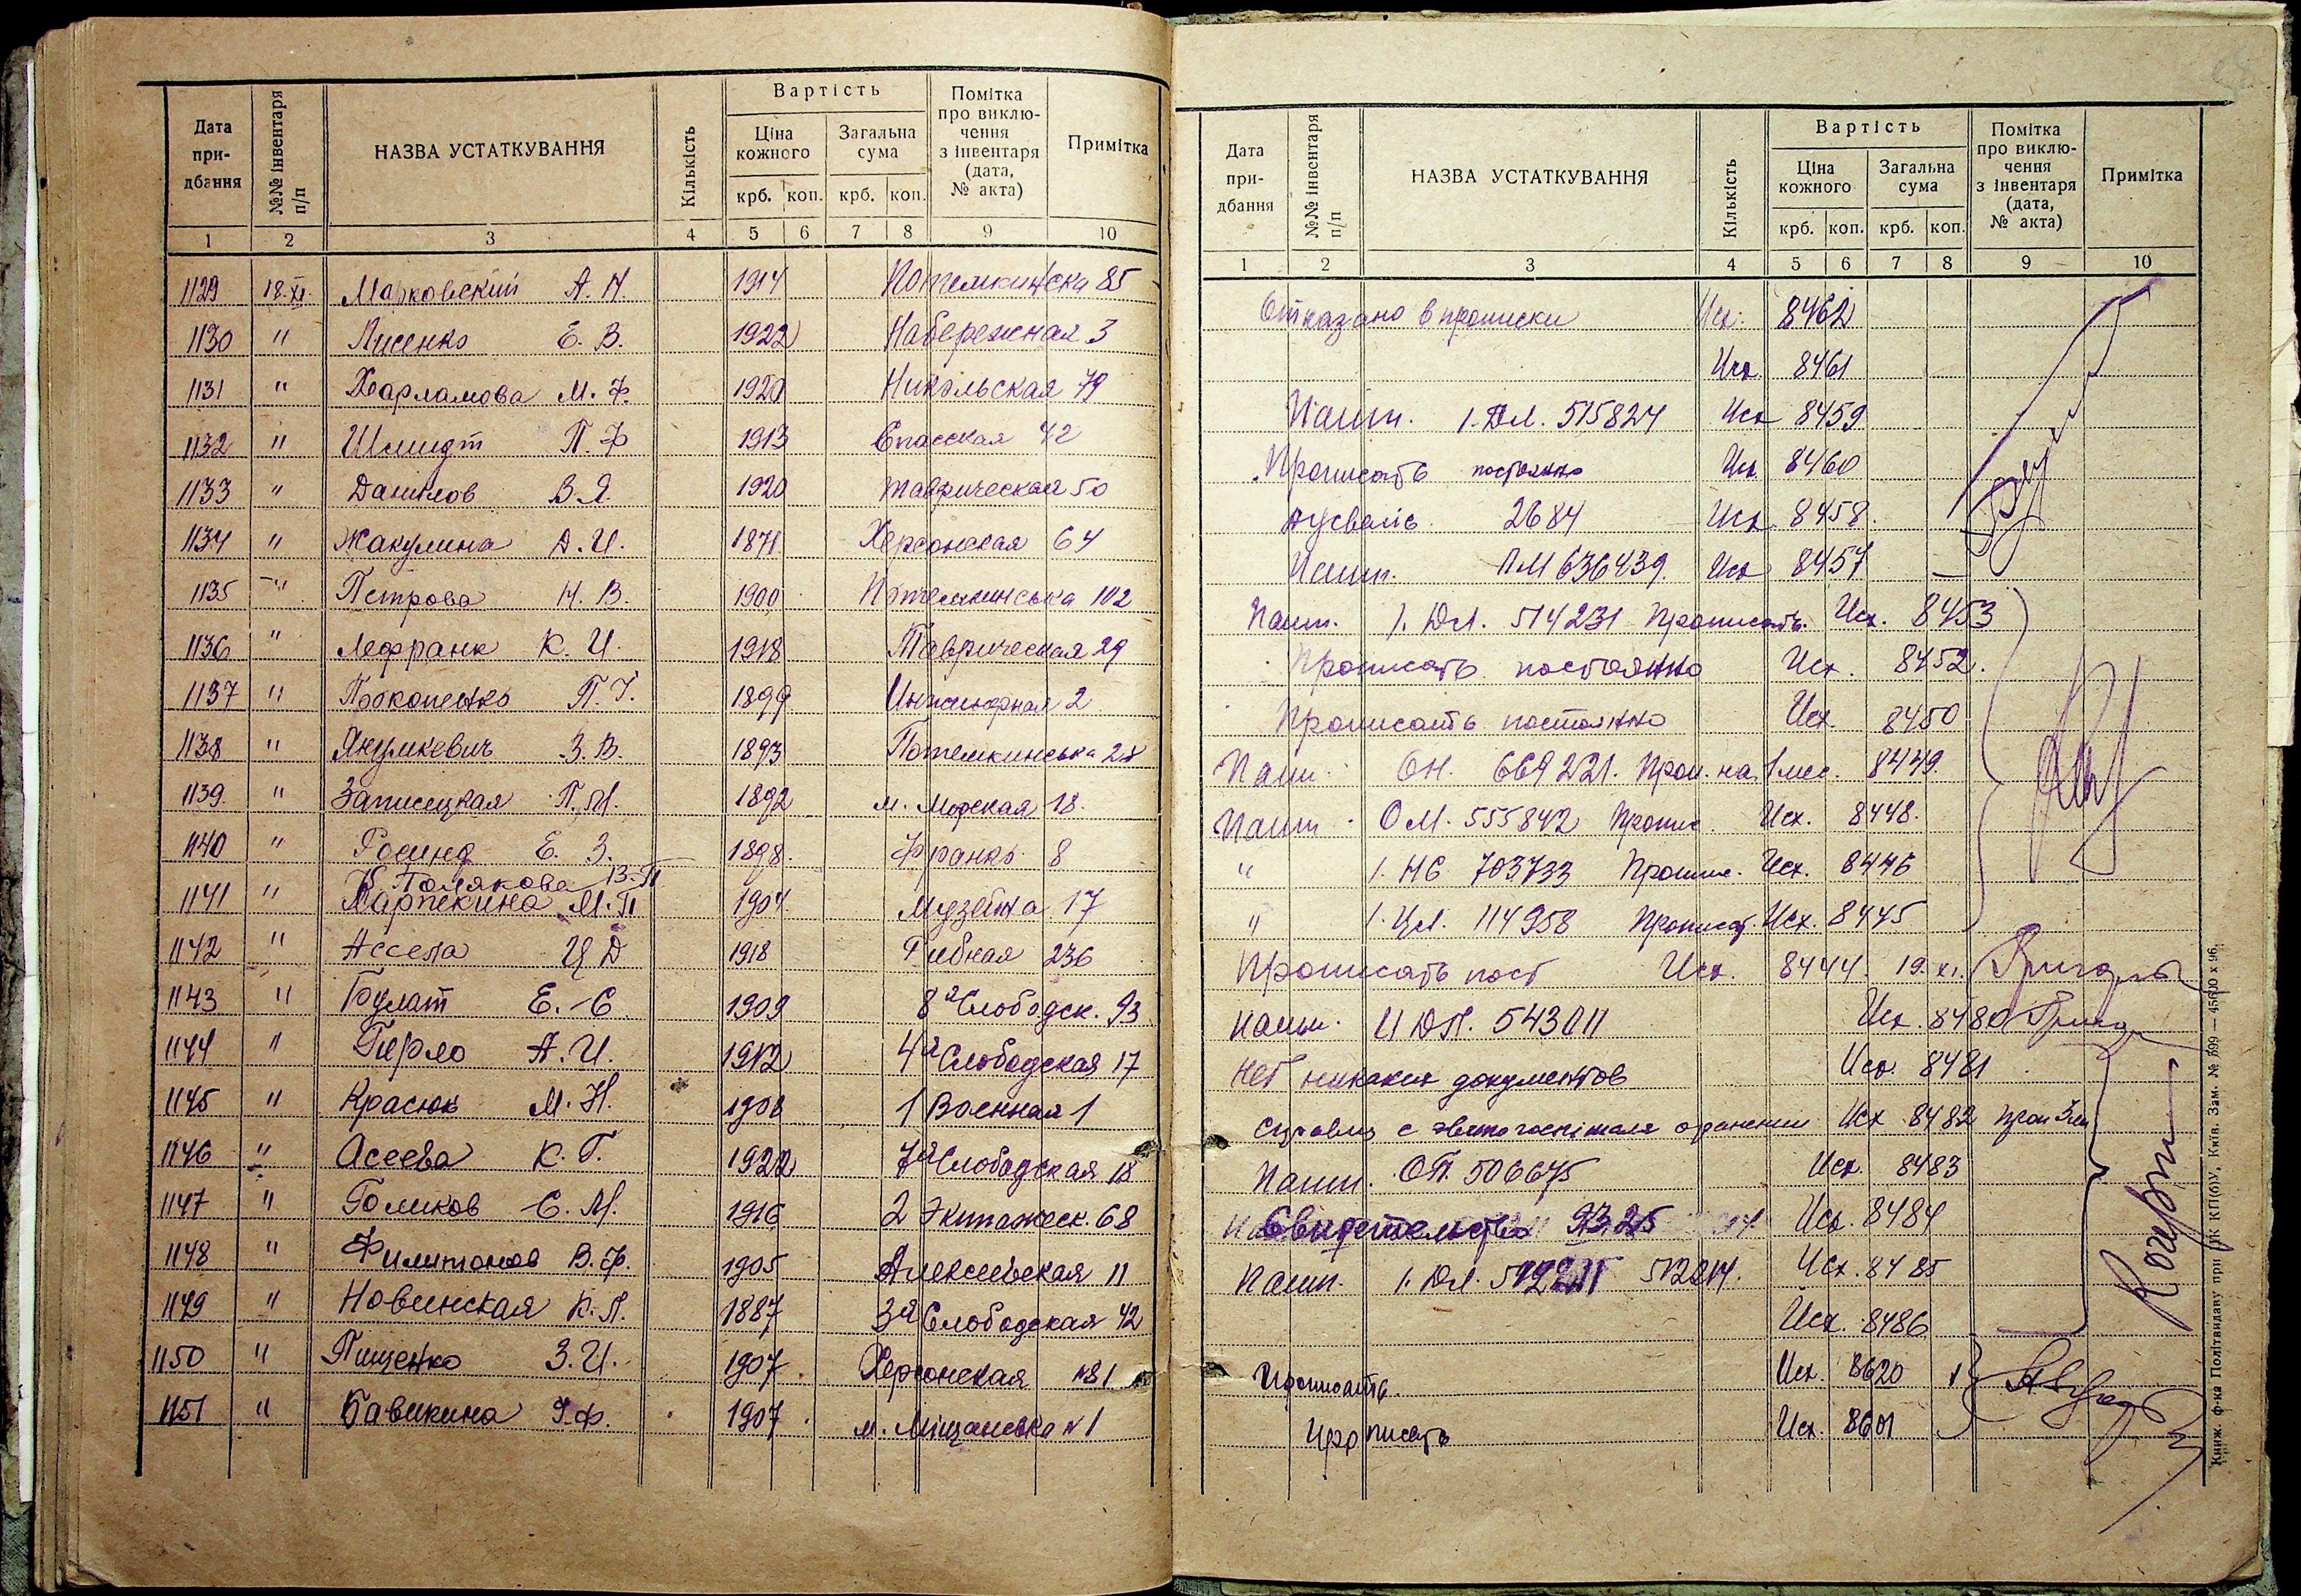 Дата при-дбання №№ інвентаря п/п НАЗВА УСТАТКУВАННЯ Кількість Вартість Ціна кожного крб. коп. Загальна сума крб. коп. Помітка про виклю-чення з інвентаря (дата, № акта) Примітка
1 2 3 4 5 6 7 8 9 10
1129 18.XI. Марковский А.Н. 1914 Потемкинска 85
1130 " Лисенко Е.В. 1922 Набережная 3
1131 " Харламова М.Ф. 1920 Никольская 79
1132 " Шмидт П.Ф 1913 Спасская 42
1133 " Данилов В.Я. 1920 Таврическая 50
1134 " Жакулина А.И. 1871 Херсонская 64
1135 " Петрова Н.В. 1900 Потемкинська 102
1136 " Лефранк К.И. 1918 Таврическая 29
1137 " Прокопенко П.Г. 1899 Инженерная 2
1138 " Янушкевич З.В. 1893 Потемкинська 28
1139 " Записецкая П.М. 1892 м. Морская 18.
1140 " Е.З. 1898. Франко 8
Полякова В.П
1141 " Карпекина М.П 1904 Музейна 17
1142 " Ассела И Д 1918 Рибная 236
1143 " Булат Е.С 1909 8я Слободск. 93
1144 " Гирло А.И. 1912 4я Слободская 17
1145 " Красюк М.Н. 1908 1 Военная 1
1146 " Асеева К.Г. 1922 7я Слободская 18
1147 " Голиков С.М. 1916 2 Экипажеск. 68
1148 " Филимонов В.Ф. 1905 11
1149 " Новинская К.П. 1887 3я Слободская 42
1150 " Пищенко З.И. 1907 Херсонская №81
1151 " Бавикина Ф. 1907. м. Міщанська №1
Дата при-дбання №№ інвентаря п/п НАЗВА УСТАТКУВАННЯ Кількість Вартість Ціна кожного крб. коп. Загальна сума крб. коп. Помітка про виклю-чення з інвентаря (дата, № акта) Примітка
1 2 3 4 5 6 7 8 9 10
Отказано в прописки Исх. 8462
Исх. 8461
Пашп. 1.ДЛ. 515824 Исх 8459
Прописать постоянно Исх. 8460
Аусвайс 2684 Исх. 8458.
Пашп. ПМ 636439. Исх 8457
Пашп. 1. ДЛ. 514231 Прописать. Исх. 8453
Прописать постоянно Исх. 8452.
Прописать постоянно Исх. 8450
Пашп. ОН. 669221. Проп. на 1 мес. 8449.
Пашп. ОМ. 555842 Пропис. Исх. 8448.
" 1. НС 703733 Пропис. Исх. 8446
" 114958 Прописат. Исх. 8445
Прописать пост Исх. 8444. 19.XI.
Пашп. 543011 Исх. 8480
Нет никаких документов Исх. 8481
с Исх 8482
Пашп. ОП. 506675 Исх. 8483
Свидетельство 9325 Исх. 8484
Пашп. 1. ДЛ. 512214. Исх. 8485
Исх. 8486
Прописать. Исх. 8620
Прописать Исх. 8601
Книж. ф-ка Політвидаву при ЦК КП(б)У, Київ. Зам. № 599 — 45610 x 96